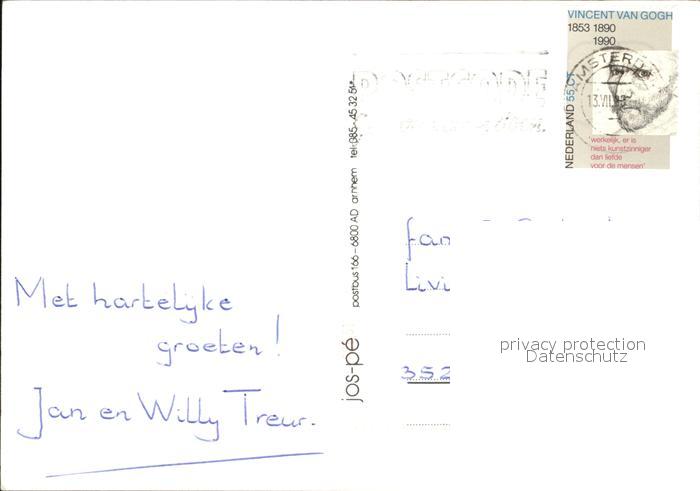 VINCENT VAN GOGH
1853 1890
1990
NEDERLAND 55 CT
AMSTERD
13.VII
'werkelijk, er is
niets kunstzinniger
dan liefde
voor de mensen'
jos-pé
postbus 166 – 6800 AD arnhem tel: 085 - 45 32 51*
fam
Livi
352
privacy protection
Datenschutz
Met hartelijke
groeten!
Jan en Willy Treur.